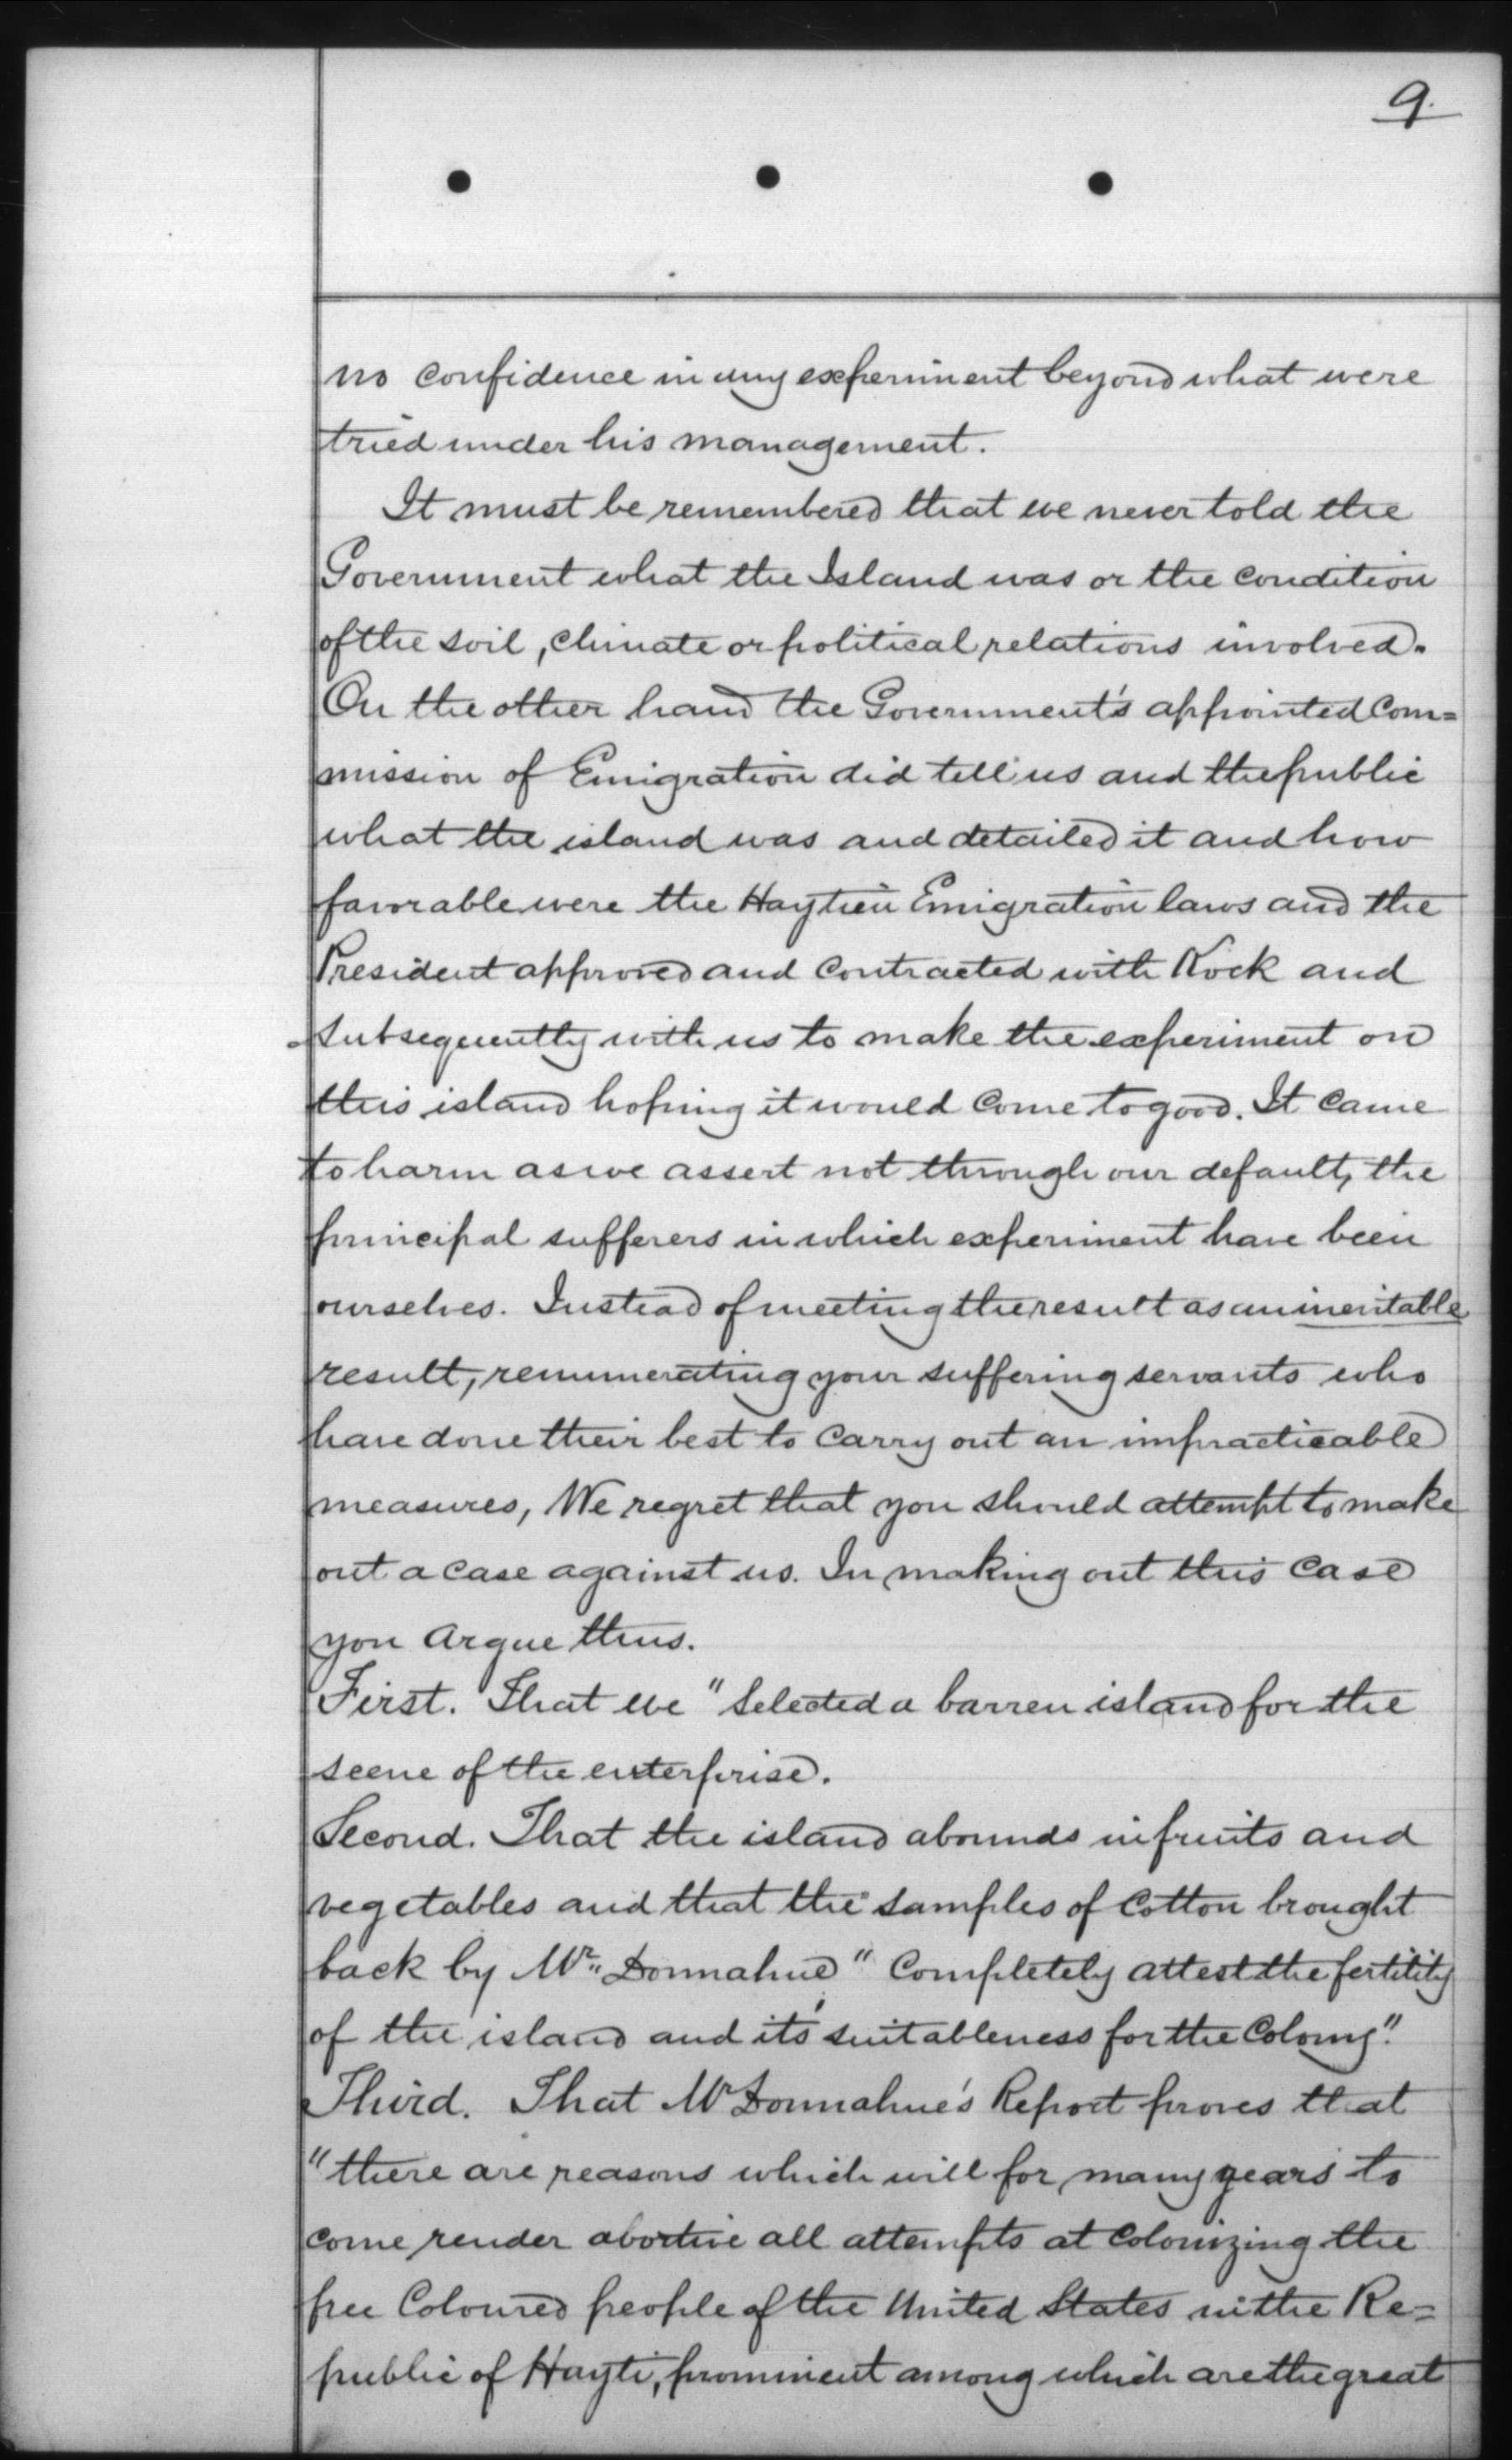 9.
no confidence in any experiment beyond what were
tried under his management.
It must be remembered that we never told the
Government what the Island was or the condition
of the soil, climate or political relations involved.
On the other hand the Government's appointed Com=
mission of Emigration did tell us and the public
what the island was and detailed it and how
favorable were the Haytien Emigration laws and the
President approved and contracted with Kock and
subsequently with us to make the experiment on
this island hoping it would come to good. It came
to harm as we assert not through our default, the
principal sufferers in which experiment have been
ourselves. Instead of meeting the result as an inevitable
result, renumerating your suffering servants who
have done their best to carry out an impracticable
measures, We regret that you should attempt to make
out a case against us. In making out this case
you argue thus.
First. That we "selected a barren island for the
scene of the enterprise.
Second. That the island abounds in fruits and
vegetables and that the samples of cotton brought
back by Mr. Donnahue "Completely attest the fertility
of the island and it's suitableness for the Colony."
Third. That Mr Donnahue's Report proves that
"there are reasons which will for many years to
come render abortive all attempts at colonizing the
free Coloured people of the United States in the Re=
public of Hayti, prominent among which are the great